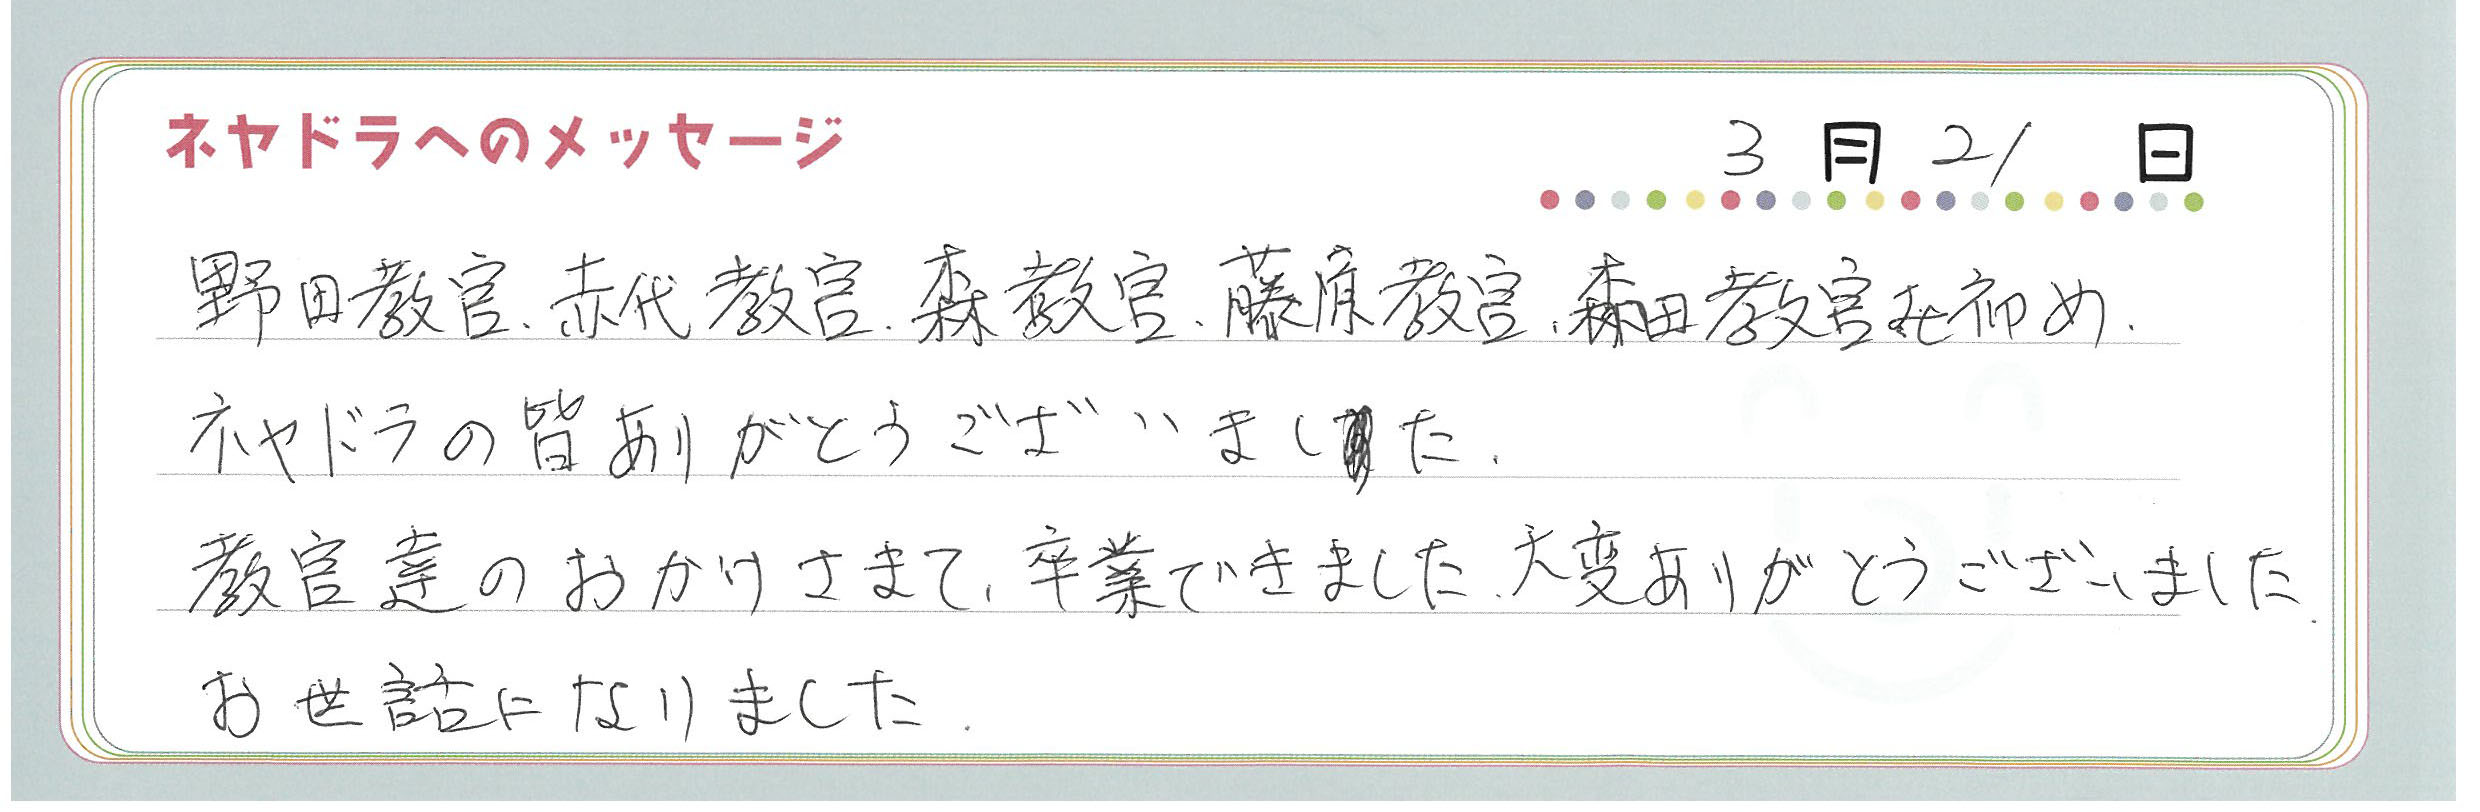 ネヤドラへのメッセージ
3月21日
野田教官、赤代教官、森教官、藤原教官、森田教官を初め、
ネヤドラの皆ありがとうございました。
教官達のおかけさまて、卒業できました、大変ありがとうございました。
お世話になりました。